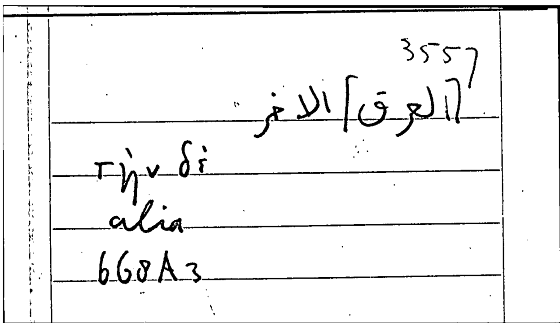 3557
[العرق] الاخر
τὴν δὲ
alia
668A3